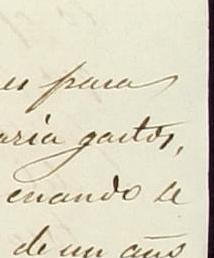 es para
aria gastos,
cuando se
de un año